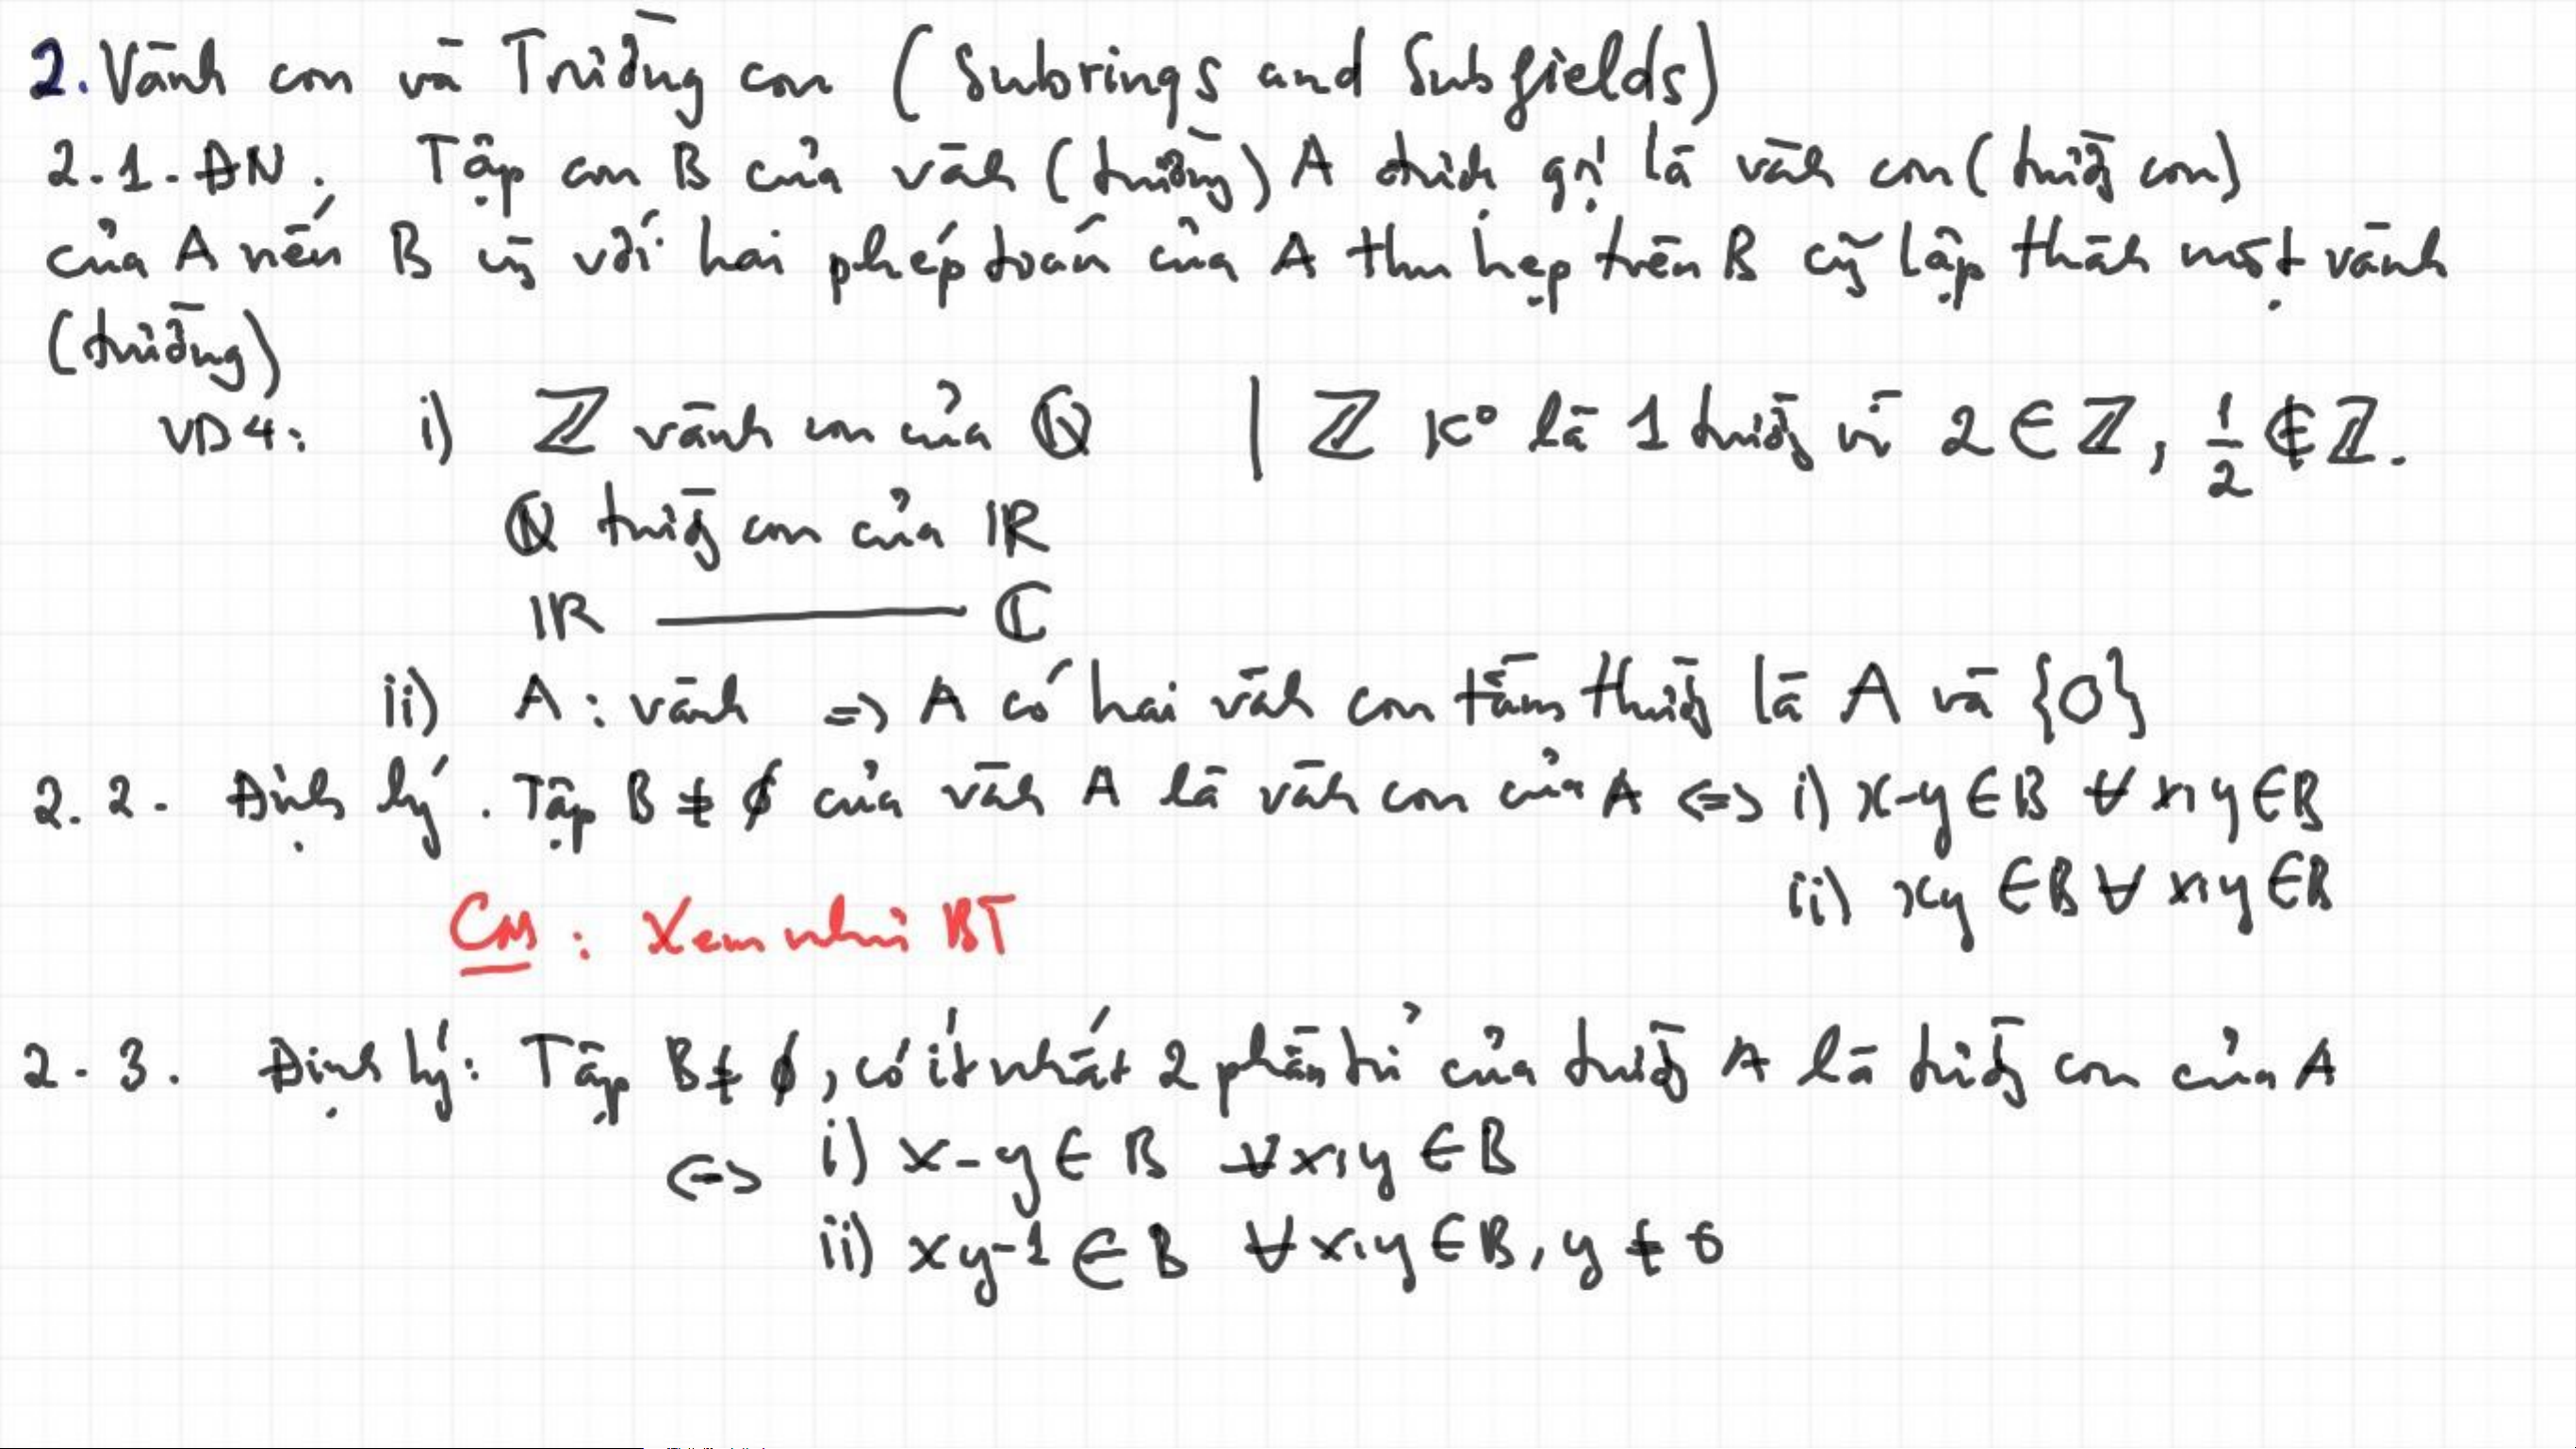 2. Vành con và Trường con (Subrings and Subfields)
2.1. ĐN. Tập con B của vành (trường) A được gọi là vành con (trường con)
của A nếu B cùng với hai phép toán của A thu hẹp trên B cũng lập thành một vành
(trường)
VD4: i) ℤ vành con của ℚ | ℤ K° là 1 trường vì 2 ∈ ℤ, 1/2 ∉ ℤ.
ℚ trường con của ℝ
ℝ ——— ℂ
ii) A: vành => A có hai vành con tầm thường là A và {0}
2.2. Định lý. Tập B ≠ ∅ của vành A là vành con của A <=> i) x-y ∈ B ∀ x,y ∈ B
ii) xy ∈ B ∀ x,y ∈ B
CM: Xem như BT
2.3. Định lý: Tập B ≠ ∅, có ít nhất 2 phần tử của trường A là trường con của A
<=> i) x-y ∈ B ∀x,y ∈ B
ii) xy⁻¹ ∈ B ∀x,y ∈ B, y ≠ 0